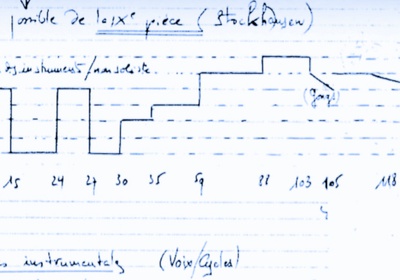 possible de la IXe pièce (Stockhausen)
instruments / non soliste
(Gongs)
15 24 27 30 35 59 88 103 105 118
4
instrumentales (Voix/Cycles)